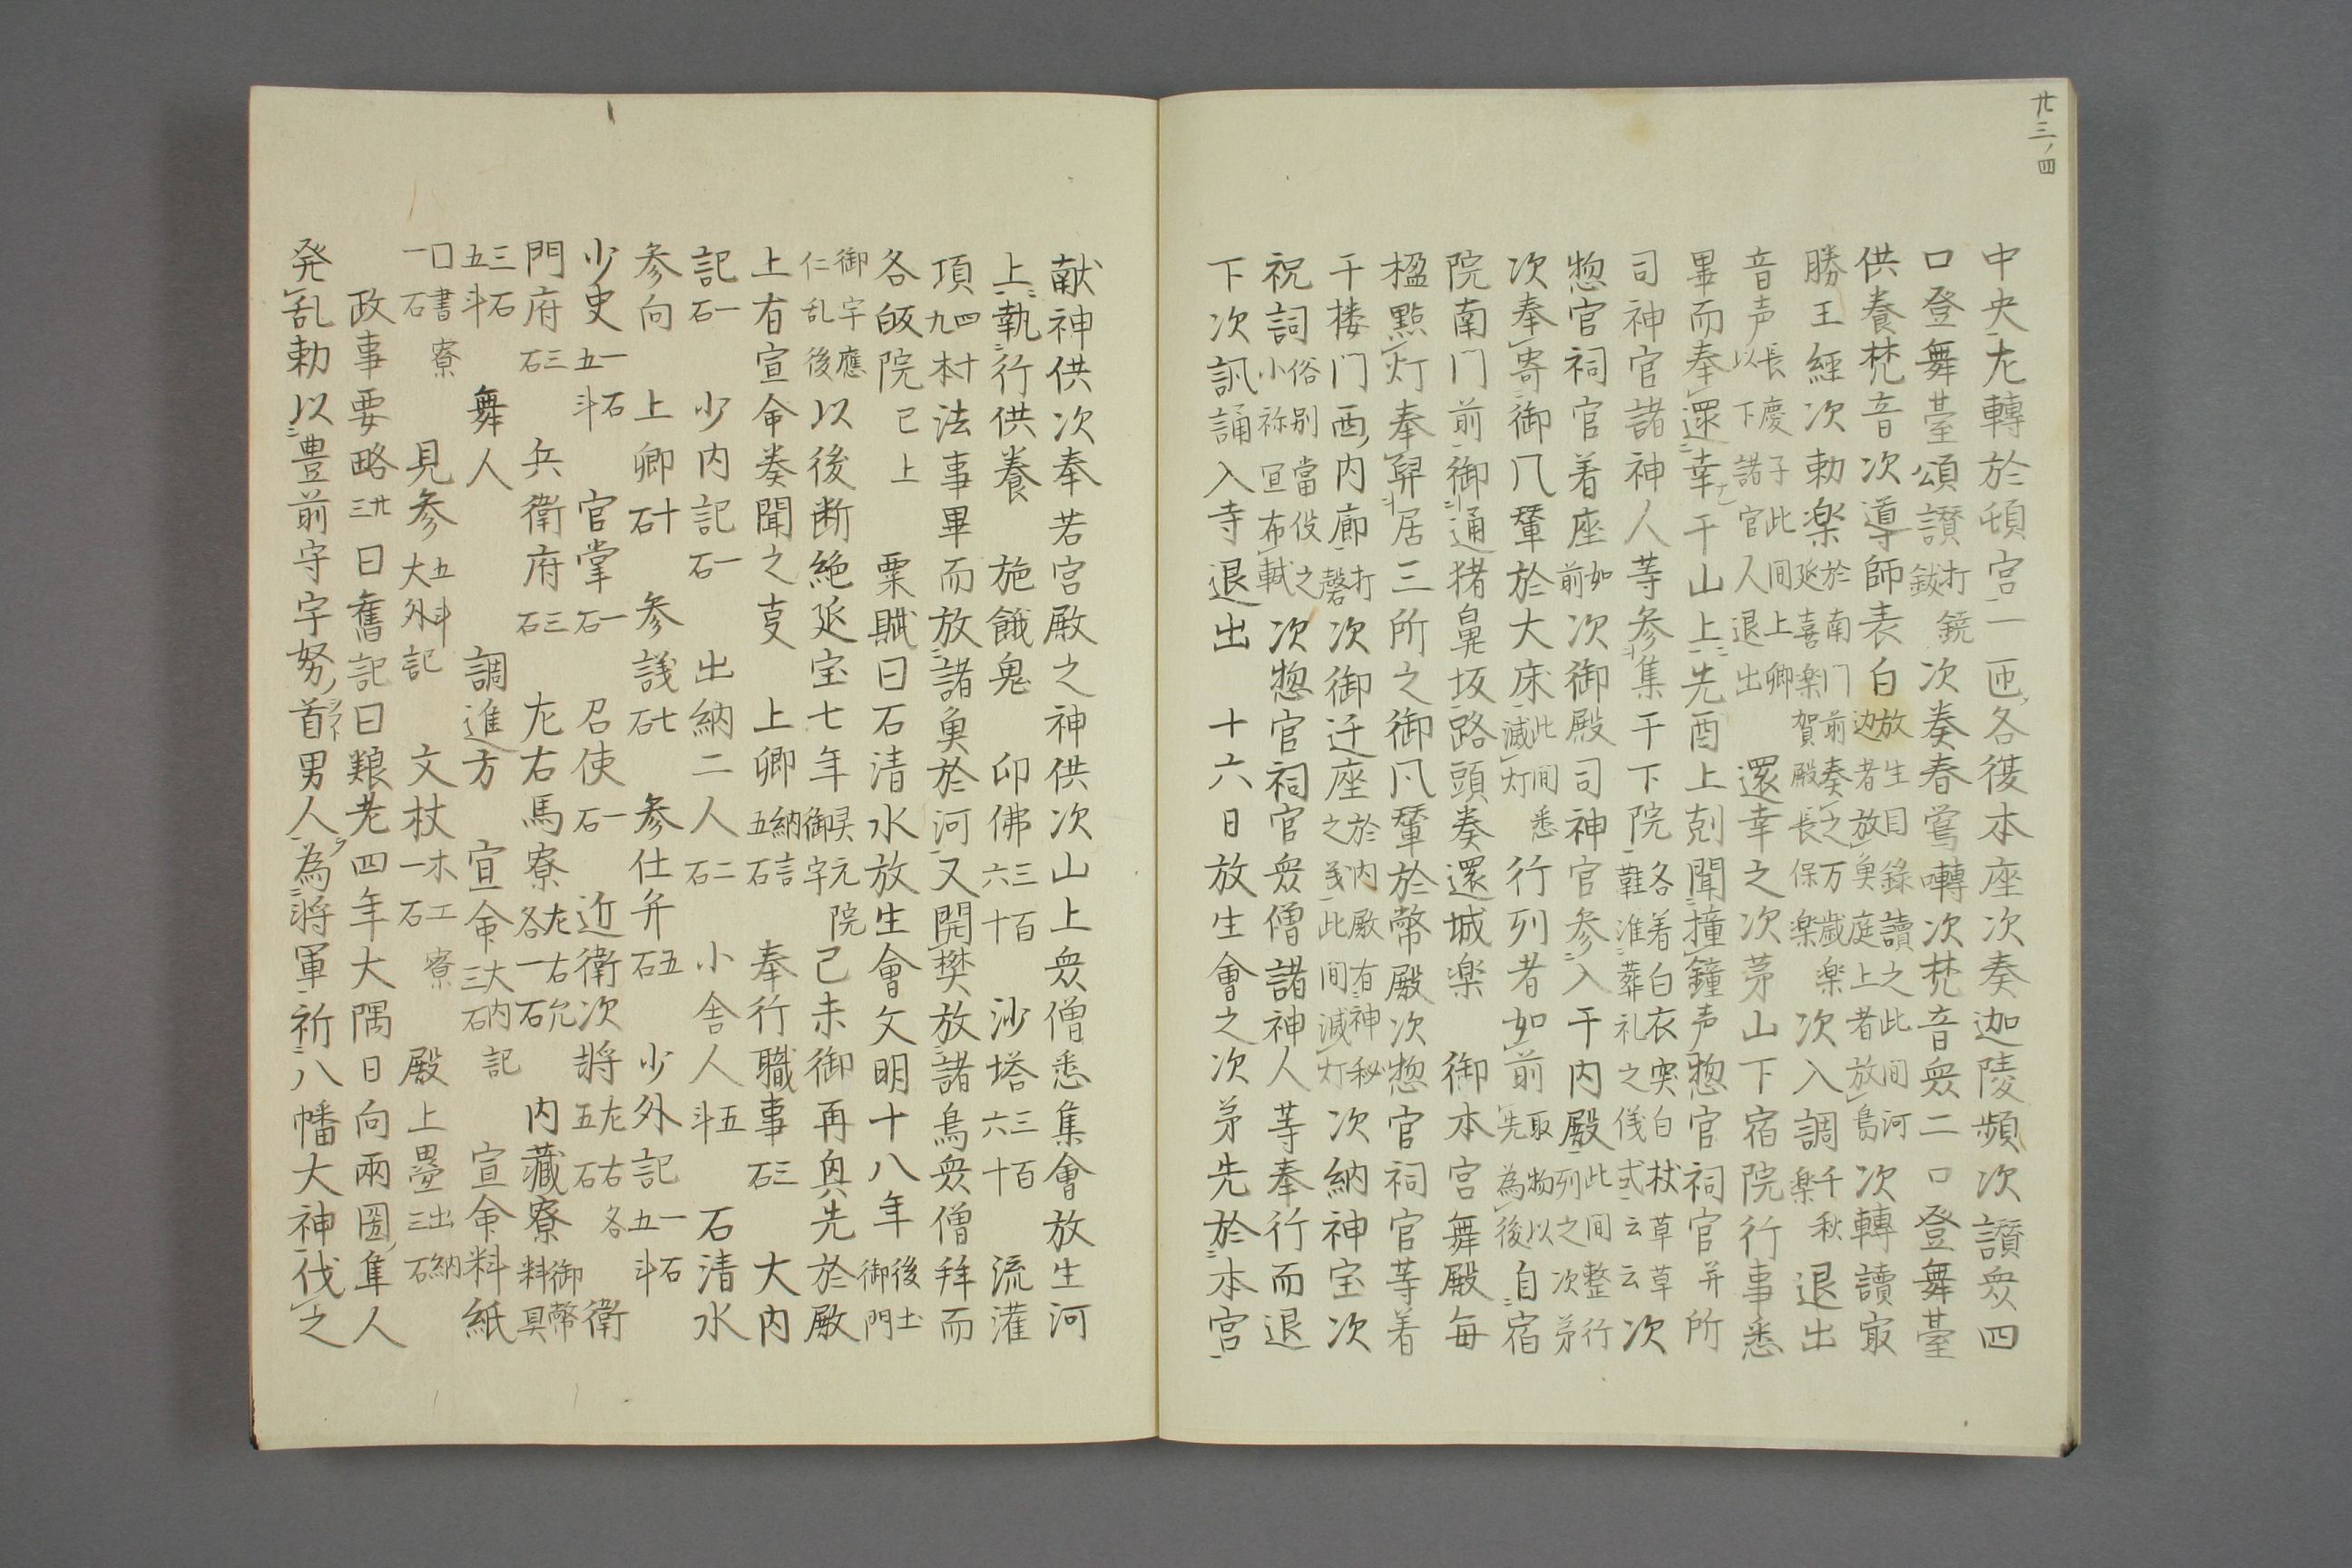 廿三ノ四
中央尤轉於頓宮一匝各復本座次奏迦陵頻次讃衆四
口登舞臺頌讃打鏡鈸次奏春鶯囀次梵音衆二口登舞臺
供養梵音次導師表白放生目録讀之此間河辺者放魚庭上者放鳥次轉讀㝡
勝王經次勅楽於南门前奏之万歳楽延喜楽賀殿長保楽次入調千秋楽退出
音声長慶子此間上卿以下諸官人退出還幸之次第山下宿院行事悉
畢而奉還幸于山上先酉上剋聞撞鐘声惣官祠官并所
司神官諸神人等参集于下院各着白衣突白杖草草鞋准葬礼之儀式云云次
惣官祠官着座如前次御殿司神官参入于内殿此間整行列之次第
次奉寄御凡輦於大床此間悉滅灯行列者如前取物以先為後自宿
院南门前御通猪鼻坂路頭奏還城楽　御本宮舞殿毎
楹點灯奉舁居三所之御凡輦於幣殿次惣官祠官等着
于楼门西内廊打磬次御迁座於内殿有神秘之義此間滅灯次納神宝次
祝詞俗別當伇之小祢宜布軾次惣官祠官衆僧諸神人等奉行而退
下次訊誦入寺退出　十六日放生會之次第先於本宮
献神供次奉若宮殿之神供次山上衆僧悉集會放生河
上執行供養　施餓鬼　印佛三百六十　沙塔三百六十　流灌
頂四十九本法事畢而放諸魚於河又開樊放諸鳥衆僧拜而
各皈院已上　粟賦曰石清水放生會文明十八年後土御門
御宇應仁乱後以後断絶延宝七年灵元院御宇己未御再興先於殿
上有宣命奏聞之㕝　上卿納言五石　奉行職事三石　大内
記一石　少内記一石　出納二人二石　小舎人五斗　石清水
参向　上卿十石　参議七石　参仕弁五石　少外記一石五斗
少史一石五斗　官掌一石　召使一石　近衛次將左右各五石　衛
門府三石　兵衛府三石　左右馬寮左右允各一石　内藏寮御幣料具
三石五斗　舞人　調進方　宣命大内記三石　宣命料紙
口書寮一石　見参五斗大外記　文杖木工寮一石　殿上疉出納三石
政事要略廿三曰舊記曰粮老四年大隅日向兩圀隼人
発乱勅以豊前守宇努首男人為將軍祈八幡大神伐之